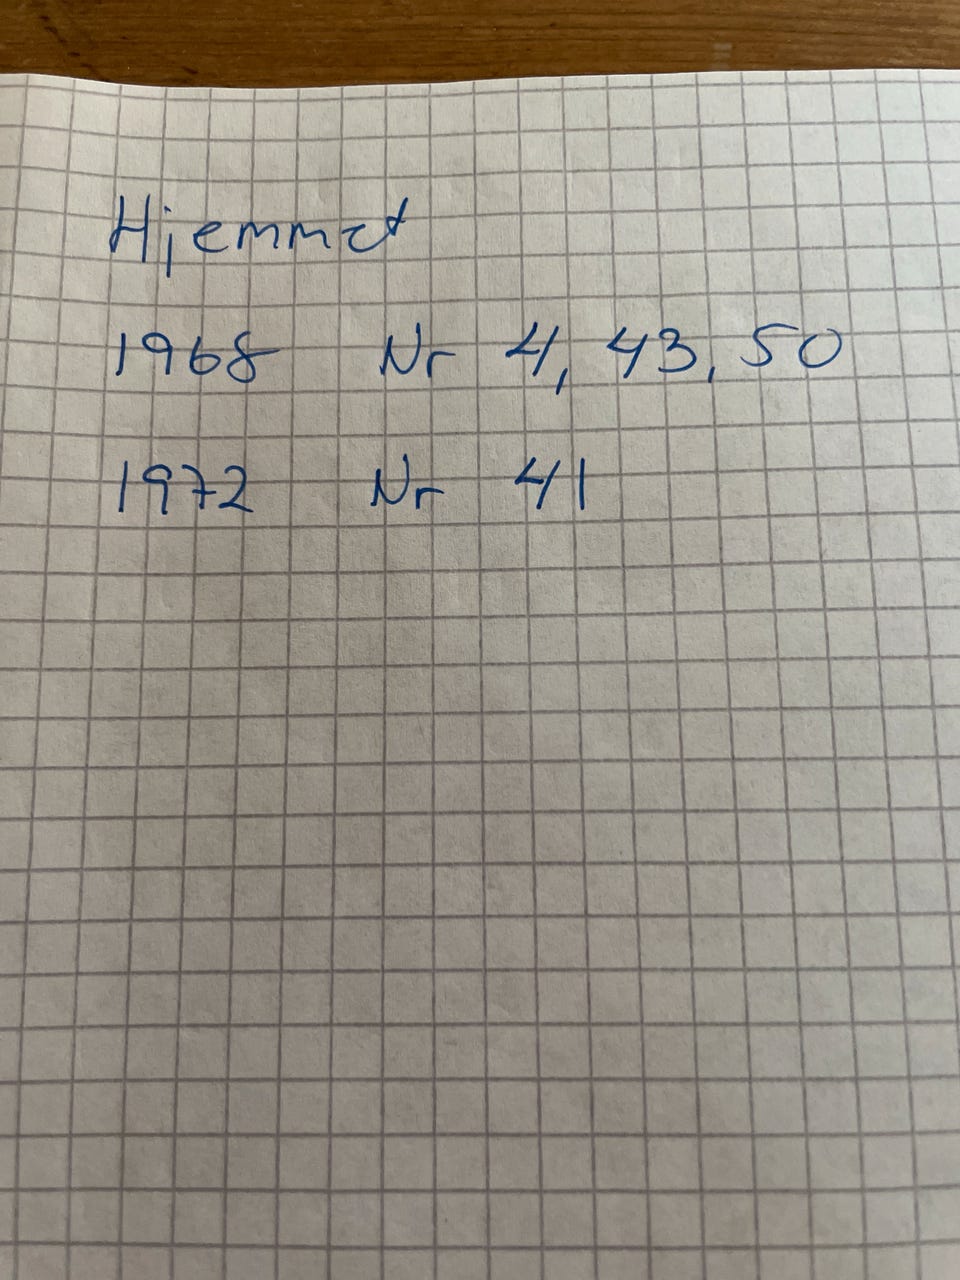 Hjemmet
1968 Nr 4, 43, 50
1972 Nr 41